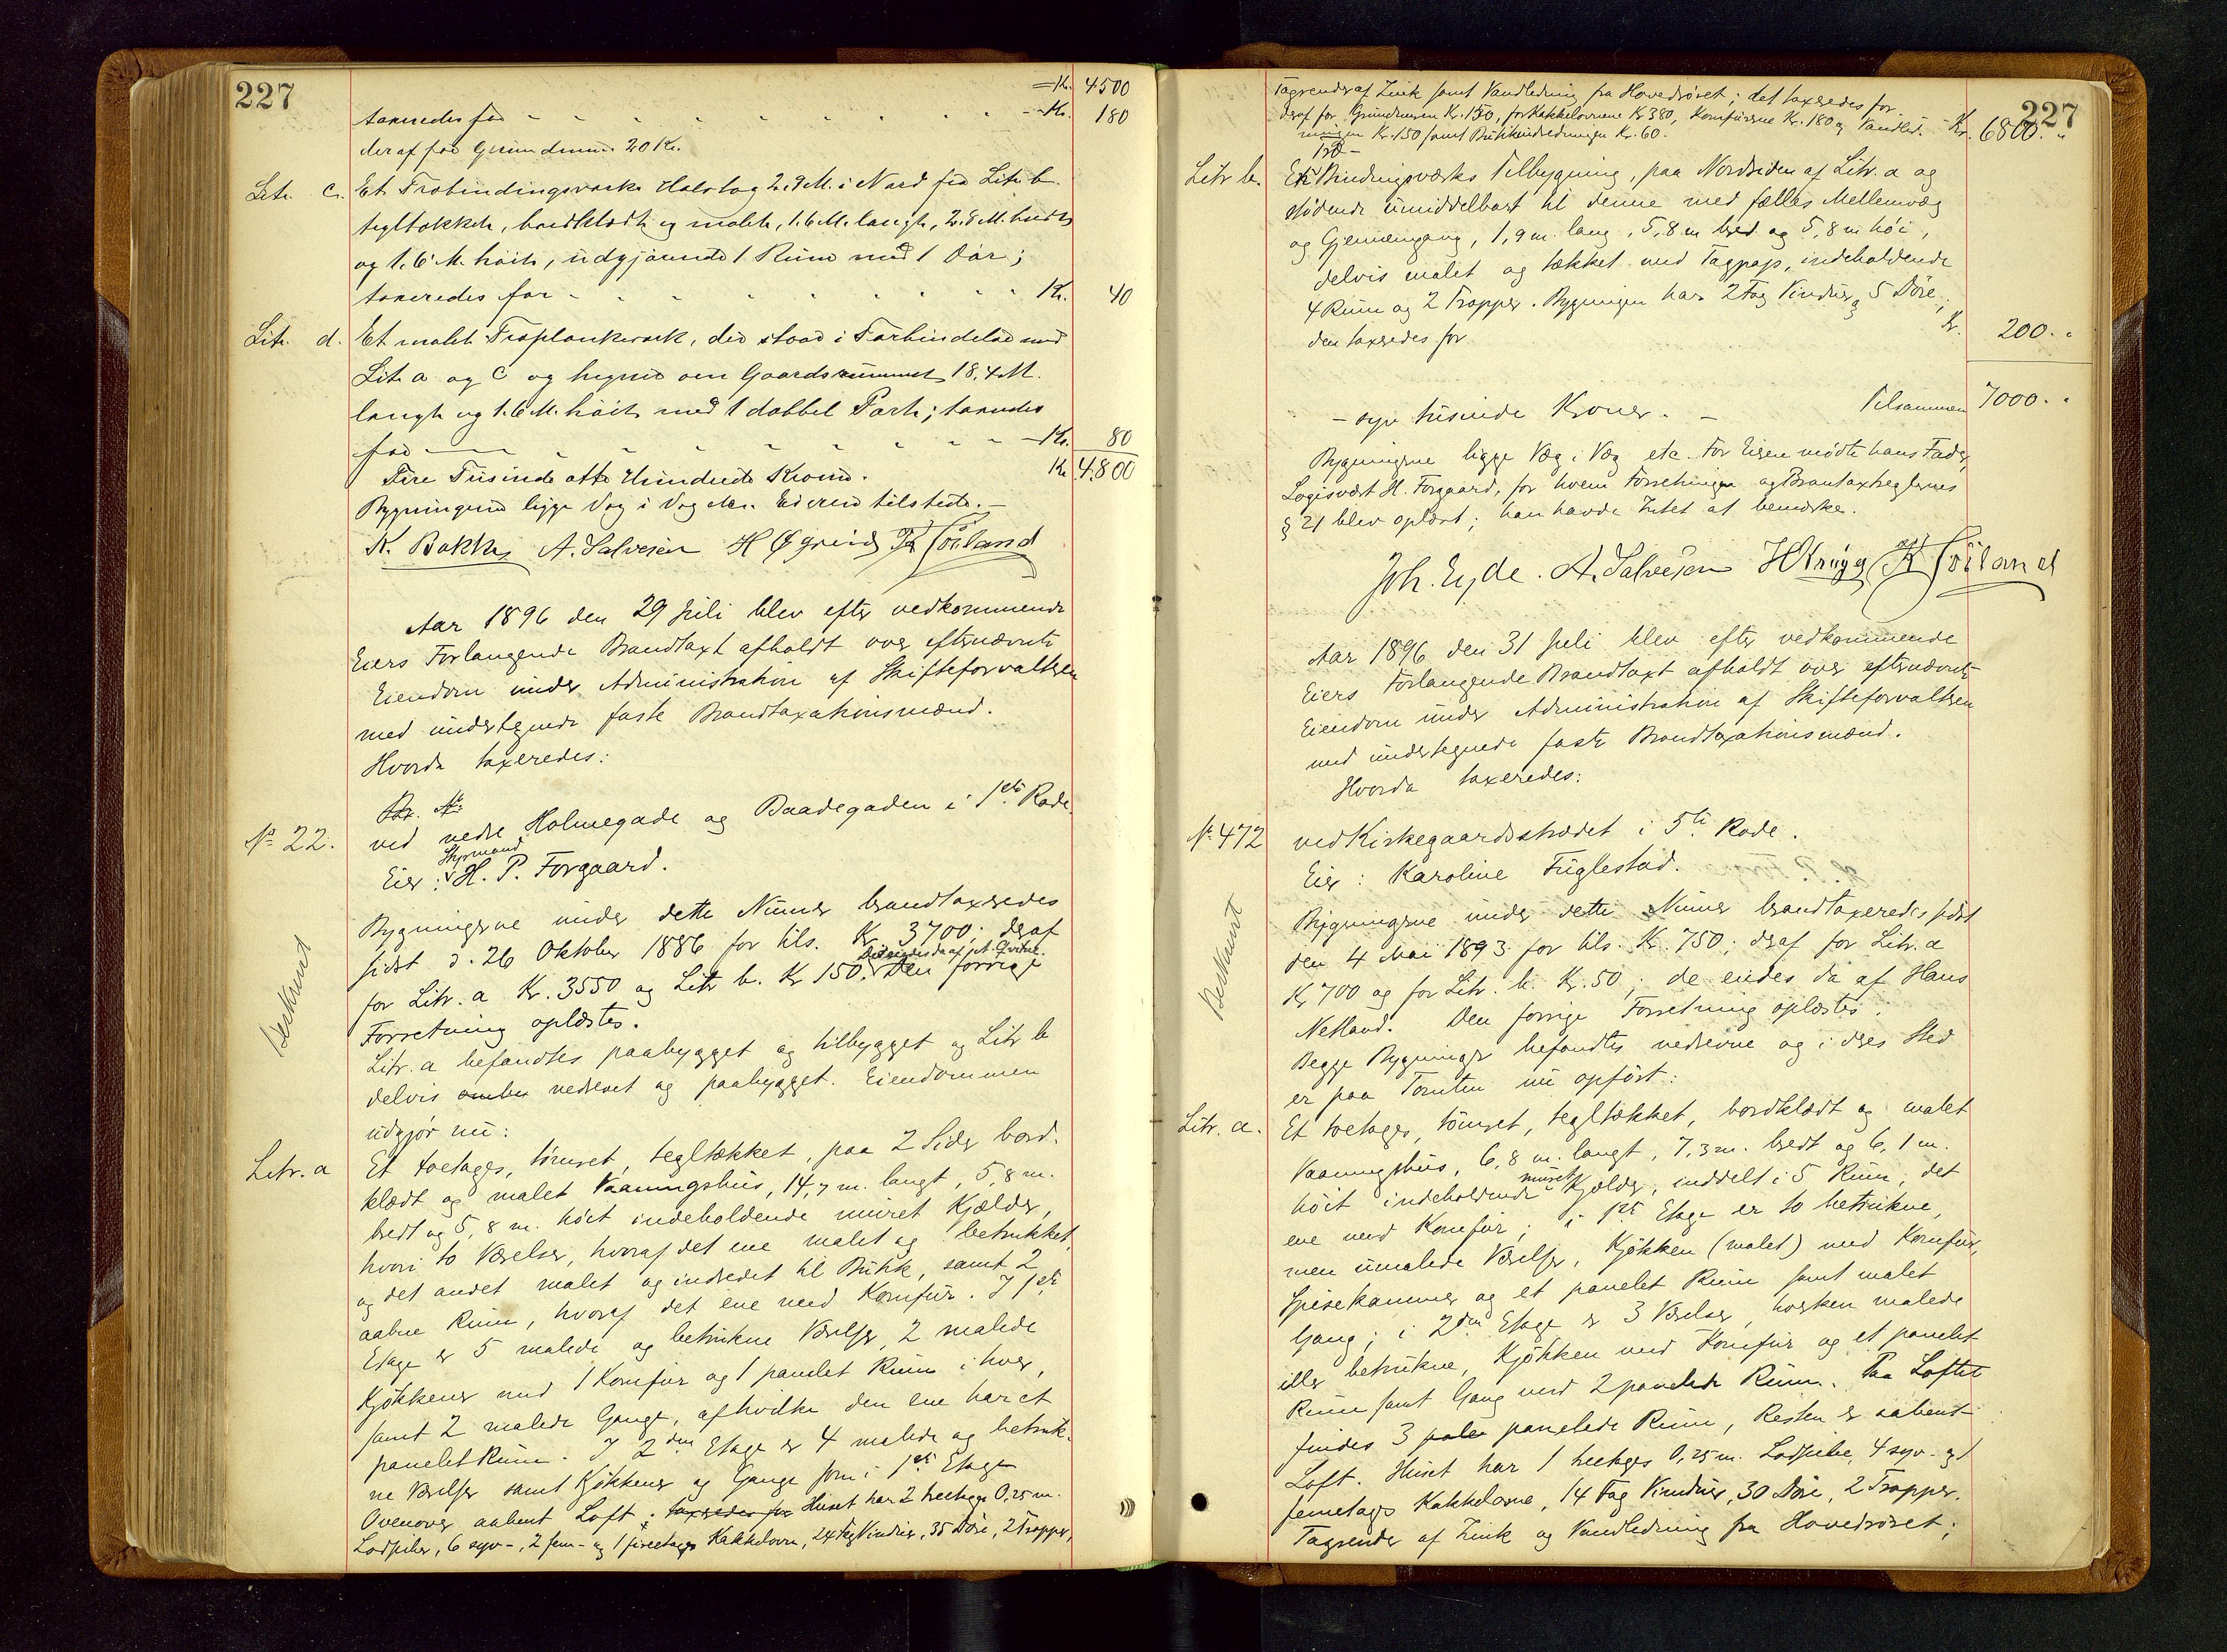 227
= Kr. 4500
taxeredes for - - - - - - - - - Kr. 180
deraf for Grundmuren 20 Kr.
Litr. c. Et Træbindingsværks Halvtag 2.9 M. i Nord fra Litr. b.
tegltækket, bordklædt og malet, 1.6 M. langt, 2.8 M. bredt
og 1.6 M. høit, udgjørende 1 Rum med 1 Dør;
taxeredes for - - - - - - - - - Kr. 40
Litr. d. Et malet Træplankeværk, der staar i Forbindelse med
Litr. a og c og hegner om Gaardsrummet 18,4 M.
langt og 1.6 M. høit med 1 dobbel Port; taxeredes
for - - - - - - - - - Kr. 80
Fire Tusinde otte Hundrede Kroner. Kr. 4,800
Bygningerne ligge Væg i Væg etc. Eieren tilstede. -
K. Bakke A. Salvesen H Øgreid K Höiland
Aar 1896 den 29 Juli blev efter vedkommende
Eiers Forlangende Brandtaxt afholdt over efternævnte
Eiendom under Administration af Skifteforvalteren
med undertegnede faste Brandtaxationsmænd.
Hvorda taxeredes:
Br. No
No 22. ved nedre Holmegade og Baadegaden i 1ste Rode
Styrmand
Eier: H. P. Forgaard.
Beskaaret
Bygningerne under dette Numer brandtaxeredes
sidst d. 26 Oktober 1886 for tils. Kr. 3700; deraf
De eiedes da af
for Litr. a Kr. 3550 og Litr b. Kr 150. Den forrige
Forretning oplæstes.
Litr. a befandtes paabygget og tilbygget og Litr b
delvis ombr nedrevet og paabygget. Eiendommen
udgjør nu:
Litr. a Et toetages, tømret, tegltækket, paa 2 Sider bord-
klædt og malet Vaaningshus, 14,7 m. langt, 5,8 m.
bredt og 5,8 m. høit indeholdende muret Kjælder,
hvori to Værelser, hvoraf det ene malet og betrukket,
og det andet malet og indredet til Butik, samt 2
aabne Rum, hvoraf det ene med Komfur. I 1ste
Etage er 5 malede og betrukne Værelser, 2 malede
Kjøkkener med 1 Komfur og 1 panelet Rum i hver,
samt 2 malede Gange, af hvilke den ene har et
panelet Rum. I 2den Etage er 4 malede og betruk-
ne Værelser samt Kjøkkener og Gange som i 1ste Etage
Ovenover aabent Loft. taxeredes for Huset har 2 treetages 0,25 m.
Lodpiber, 6 syv-, 2 fem- og 1 fireetages Kakkelovn, 24 Fag Vinduer, 35 Døre, 2 Trapper,
227
Tagrender af Zink samt Vandledning fra Hovedrøret; det taxeredes for
deraf for Grundmuren Kr. 150, for Kakkelovnene Kr 380, Komfurene Kr. 180 og Vandled- Kr. 6800. "
ningen Kr. 150 samt Butikindredningen Kr. 60.
Træ-
Litr b. En Bindingsværks Tilbygning, paa Nordsiden af Litr. a og
stødende umiddelbart til denne med fælles Mellemvæg
og Gjennemgang, 1,9 m lang, 5,8 m bred og 5,8 m høi,
delvis malet og tækket med Tagpap, indeholdende
4 Rum og 2 Trapper. Bygningen har 2 Fag Vinduer og 5 Døre;
den taxeredes for Kr. 200. "
- syv tusinde Kroner. - Tilsammen 7000. "
Bygningerne ligge Væg i Væg etc. For Eieren mødte hans Fader,
Logisvært H. Forgaard, for hvem Forretningen og Brantaxtreglernes
§ 21 blev oplæst; han havde Intet at bemærke.
Joh. Eyde. A. Salvesen H Krøyg K Höiland
Aar 1896 den 31 Juli blev efter vedkommende
Eiers Forlangende Brandtaxt afholdt over efternævnte
Eiendom under Administration af Skifteforvalteren
med undertegnede faste Brandtaxationsmænd.
Hvorda taxeredes:
No 472 ved Kirkegaardsstrædet i 5te Rode.
Eier: Karoline Fuglestad.
Beskaaret
Bygningerne under dette Numer brandtaxeredes sidst
den 4 Mai 1893 for tils. Kr. 750; deraf for Litr. a
Kr 700 og for Litr. b. Kr. 50; de eiedes da af Hans
Netland. Den forrige Forretning oplæstes.
Begge Bygninger befandtes nedrevne og i deres Sted
er paa Tomten nu opført:
Litr. a. Et toetages, tømret, tegltækket, bordklædt og malet
Vaaningshus, 6,8 m. langt, 7,3 m. bredt og 6,1 m.
muret
høit indeholdende Kjælder, inddelt i 5 Rum, det
ene med Komfur; i 1ste Etage er to betrukne,
men umalede Værelser, Kjøkken (malet) med Komfur,
Spisekammer og et panelet Rum samt malet
Gang; i 2den Etage er 3 Værelser, hverken malede
eller betrukne, Kjøkken med Komfur og et panelet
Rum samt Gang med 2 panelede Rum. Paa Loftet
findes 3 pale panelede Rum, Resten er aabent
Loft. Huset har 1 treetages 0,25 m. Lodpibe, 4 syv- og 1
femetages Kakkelovne, 14 Fag Vinduer, 30 Døre, 2 Trapper,
Tagrender af Zink og Vandledning fra Hovedrøret;